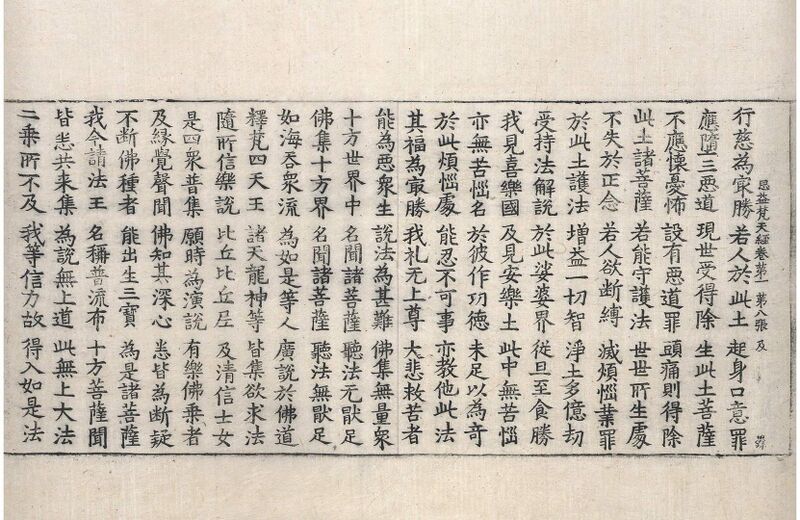 思益梵天経卷第一 第八張 及
行慈為冣勝 若人於此土 起身口意罪
應墮三惡道 現世受得除 生此土菩薩
不應懷憂怖 設有惡道罪 頭痛則得除
此土諸菩薩 若能守護法 世世所生處
不失於正念 若人欲断縛 滅煩惱業罪
於此土護法 增益一切智 淨土多億劫
受持法解説 於此娑婆界 從旦至食勝
我見喜樂國 及見安樂土 此中無苦惱
亦無苦惱名 於彼作功德 未足以為奇
於此煩惱處 能忍不可事 亦教他此法
其福為冣勝 我礼无上尊 大悲救苦者
能為惡衆生 說法為甚難 佛集無量衆
十方世界中 名聞諸菩薩 聽法无猒足
佛集十方界 名聞諸菩薩 聽法無猒足
如海吞衆流 為如是等人 廣説於佛道
釋梵四天王 諸天龍神等 皆集欲求法
隨所信樂説 比丘比丘尼 及清信士女
是四衆普集 願時為演説 有樂佛乘者
及緣覺聲聞 佛知其深心 悉皆為断疑
不断佛種者 能出生三寶 為是諸菩薩
我今請法王 名稱普流布 十方菩薩聞
皆悉共来集 為説無上道 此無上大法
二乘所不及 我等信力故 得入如是法